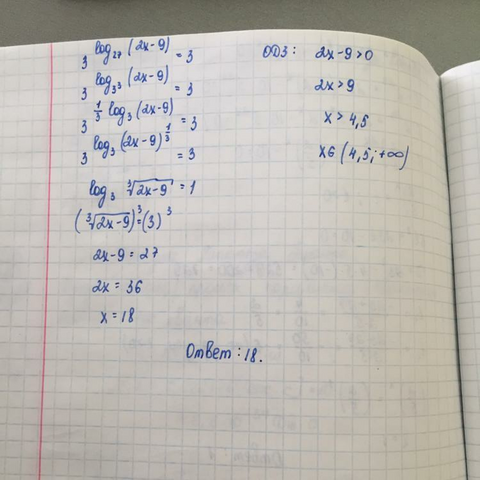 3^{log_{27}(2x-9)} = 3
3^{log_{3^3}(2x-9)} = 3
3^{\frac{1}{3} log_3(2x-9)} = 3
3^{log_3(2x-9)^{\frac{1}{3}}} = 3
log_3 \sqrt[3]{2x-9} = 1
(\sqrt[3]{2x-9})^3 = (3)^3
2x-9 = 27
2x = 36
x = 18
Ответ: 18.
ОДЗ: 2x-9>0
2x>9
x>4,5
x∈(4,5;+∞)